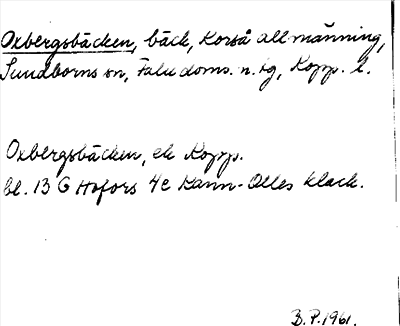 Oxbergsbäcken, bäck, Korså allmänning,
Sundborns sn, Falu doms. n. tg, Kopp. l.
Oxbergsbäcken, ek Kopp.
bl. 13 G Hofors 4c Kann-Olles klack.
B.P. 1961.